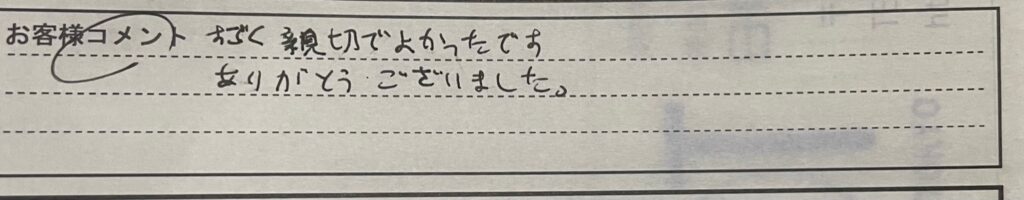 お客様コメント すごく 親切でよかったです
ありがとう ございました。